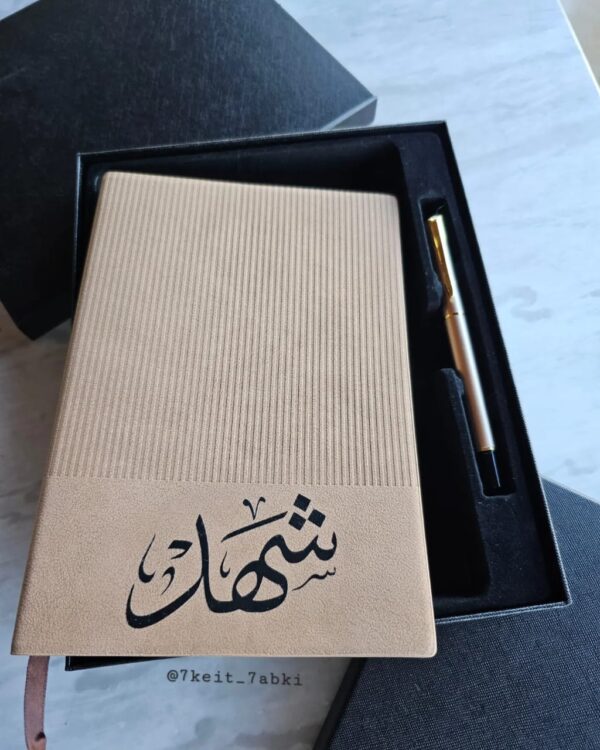 شهد
@7keit_7abki